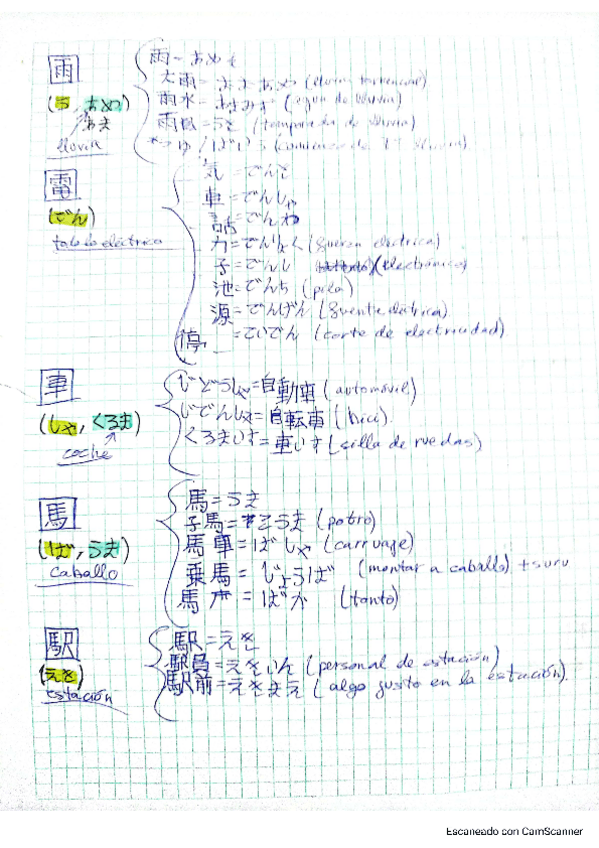 雨
(う, あめ)
あま
lluvia
雨=あめ
大雨=おおあめ (lluvia torrencial)
雨水=あまみず (agua de lluvia)
(temporada de lluvia)
つゆ/ばいう
電
(でん)
todo lo eléctrico
気=でんき
車=でんしゃ
話=でんわ
力=でんりょく (fuerza eléctrica)
子=でんし (electrónica)
池=でんち (pila)
源=でんげん (fuente eléctrica)
停_=ていでん (corte de electricidad)
車
(しゃ, くるま)
coche
じどうしゃ=自動車 (automóvil)
じでんしゃ=自転車 (bici)
くるまいす=車いす (silla de ruedas)
馬
(ば, うま)
caballo
馬=うま
子馬=こうま (potro)
馬車=ばしゃ (carruaje)
乗馬=じょうば (montar a caballo) + suru
馬=ばか (tonto)
駅
(えき)
estación
駅=えき
駅員=えきいん (personal de estación)
駅前=えきまえ (algo justo en la estación).
Escaneado con CamScanner